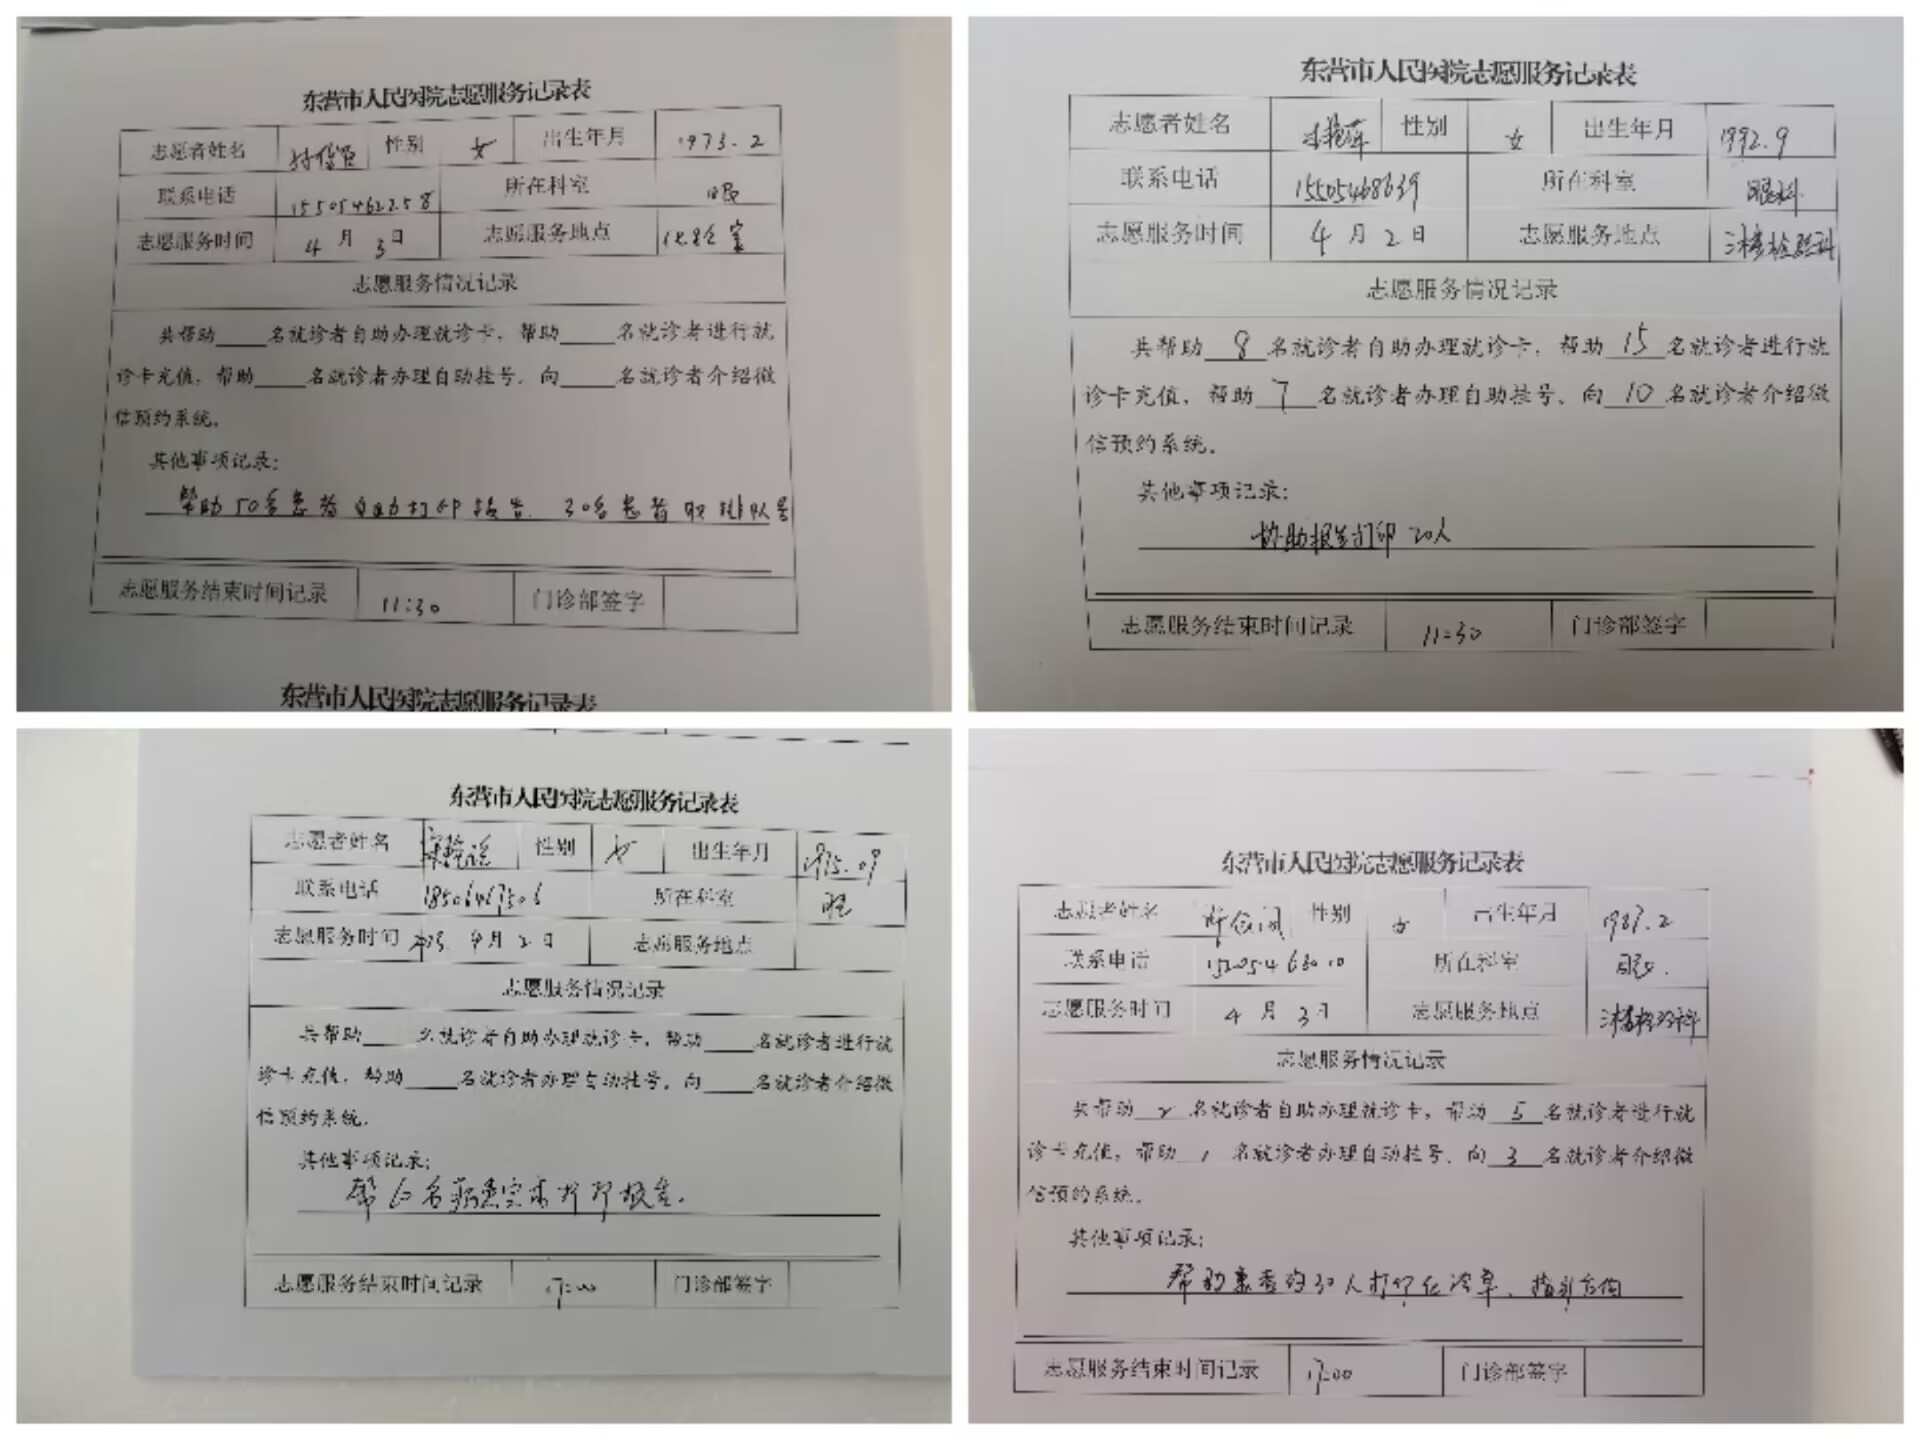 东营市人民医院志愿服务记录表
志愿者姓名 性别 女 出生年月 1973.2
联系电话 15505462258 所在科室 眼
志愿服务时间 4月3日 志愿服务地点
志愿服务情况记录
共帮助____名就诊者自助办理就诊卡，帮助____名就诊者进行就
诊卡充值，帮助____名就诊者办理自助挂号、向____名就诊者介绍微
信预约系统。
其他事项记录：
帮助50名患者自助打印报告、30名患者取排队号
志愿服务结束时间记录 11:30 门诊部签字
东营市人民医院志愿服务记录表
东营市人民医院志愿服务记录表
志愿者姓名 性别 女 出生年月 1992.9
联系电话 15505468639 所在科室 眼科
志愿服务时间 4月2日 志愿服务地点 三楼检验科
志愿服务情况记录
共帮助 8 名就诊者自助办理就诊卡，帮助 15 名就诊者进行就
诊卡充值，帮助 7 名就诊者办理自助挂号、向 10 名就诊者介绍微
信预约系统。
其他事项记录：
协助报告打印 20人
志愿服务结束时间记录 11:30 门诊部签字
东营市人民医院志愿服务记录表
志愿者姓名 性别 女 出生年月 1975.09
联系电话 所在科室 眼
志愿服务时间 4月2日 志愿服务地点
志愿服务情况记录
共帮助____名就诊者自助办理就诊卡，帮助____名就诊者进行就
诊卡充值，帮助____名就诊者办理自动挂号，向____名就诊者介绍微
信预约系统。
其他事项记录：
帮 名病患 打印报告.
志愿服务结束时间记录 17:00 门诊部签字
东营市人民医院志愿服务记录表
志愿者姓名 性别 女 出生年月 1987.2
联系电话 所在科室 眼.
志愿服务时间 4月3日 志愿服务地点 三楼检验科
志愿服务情况记录
共帮助 2 名就诊者自助办理就诊卡，帮助 5 名就诊者进行就
诊卡充值，帮助 1 名就诊者办理自动挂号、向 3 名就诊者介绍微
信预约系统。
其他事项记录：
帮助患者约30人打印化验单、指引方向
志愿服务结束时间记录 17:00 门诊部签字